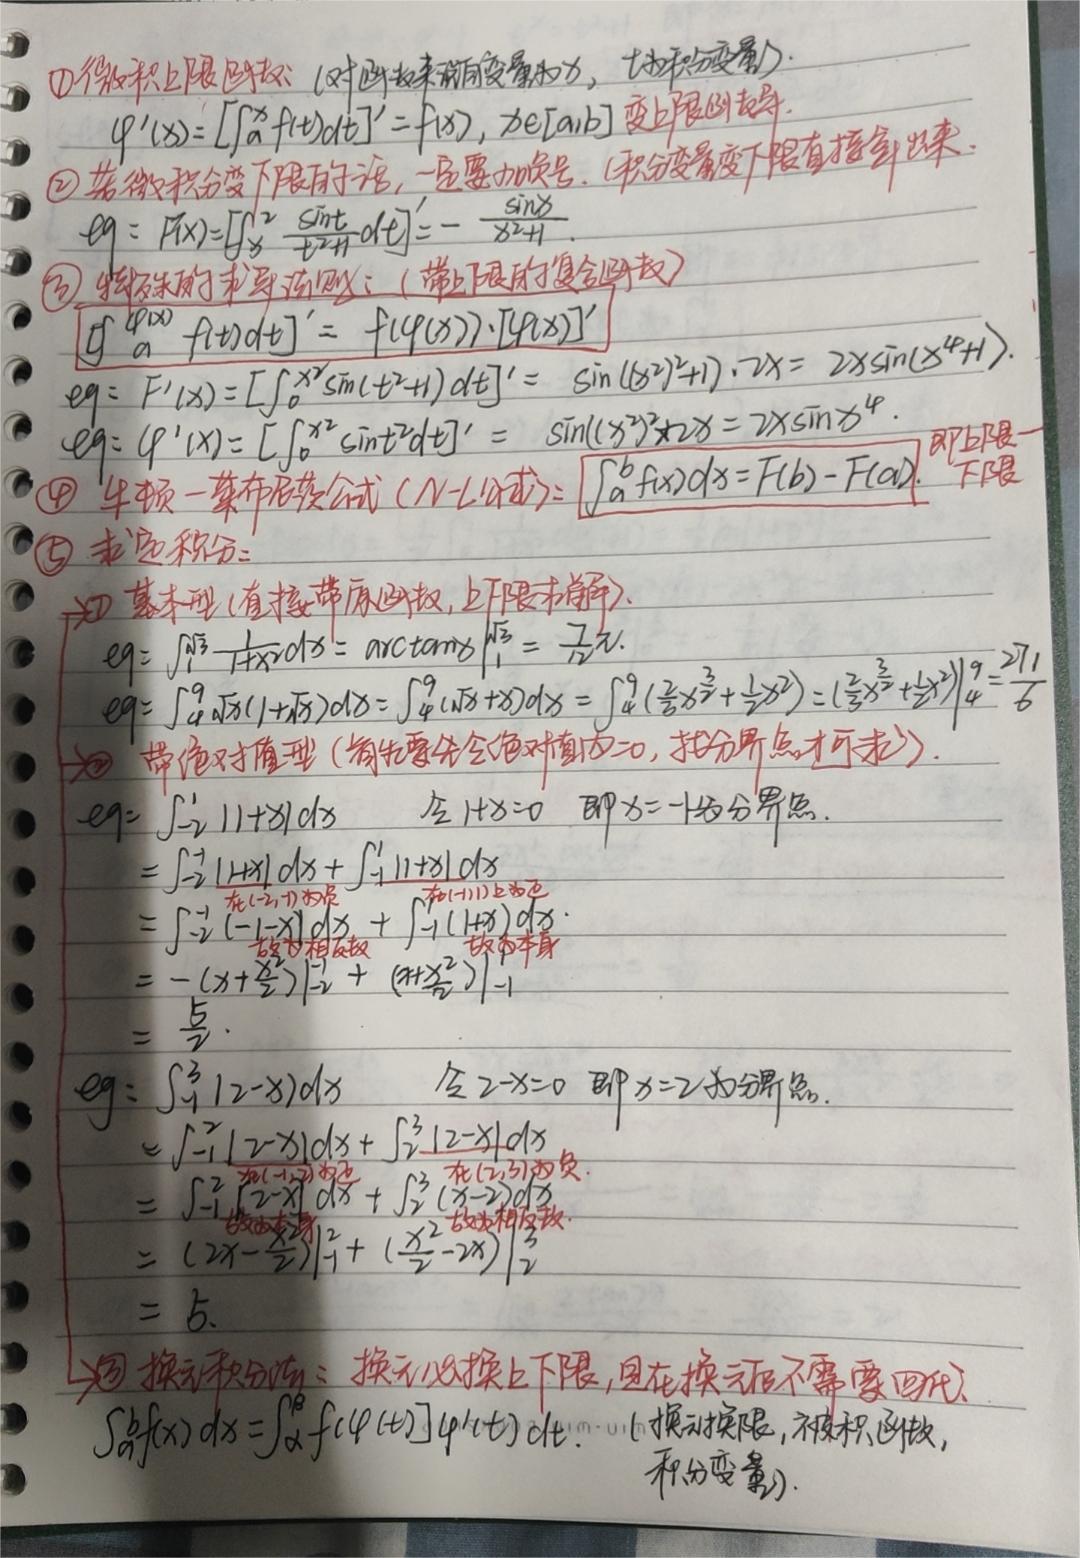 ①微积上限函数: (对函数来说自变量为x, t为积分变量).
φ'(x)=[∫ₐˣ f(t)dt]'=f(x), x∈[a,b] 变上限函数导.
②若微积分变下限的话,一定要加负号.(积分变量变下限直接拿出来.
eg: F'(x)=[∫ₓ² sint/(t²+1) dt]'= - sinx/(x²+1).
③特殊的求导法则:(带上限的复合函数)
[∫ₐ^φ(x) f(t)dt]' = f(φ(x))·[φ(x)]'
eg: F'(x)=[∫₀^x² sin(t²+1)dt]'= sin((x²)²+1)·2x= 2xsin(x⁴+1).
eg: φ'(x)=[∫₀^x² sint²dt]' = sin((x²)²×2x=2xsinx⁴.
④ 牛顿-莱布尼茨公式(N-L公式): ∫ₐᵇf(x)dx=F(b)-F(a). 即上限-下限
⑤ 求定积分:
① 基本型(直接带原函数,上下限求解).
eg: ∫₁^√3 1/(1+x²)dx= arctanx|₁^√3 = 7/12 π.
eg: ∫₄⁹√x(1+√x)dx=∫₄⁹(√x+x)dx=∫₄⁹(2/3x^(3/2)+1/2x²)=(2/3x^(3/2)+1/2x²)|₄⁹=271/6
② 带绝对值型(首先要先令绝对值内=0,找分界点才可求).
eg: ∫₋₂¹|1+x|dx 令1+x=0 即x=-1为分界点.
=∫₋₂⁻¹|1+x|dx+∫₋₁¹|1+x|dx
在(-2,-1)为负 在(-1,1)上为正
=∫₋₂⁻¹(-1-x)dx + ∫₋₁¹(1+x)dx.
故为相反数 故为本身
= -(x+x²/2)|₋₂⁻¹ + (x+x²/2)|₋₁¹
= 5/2.
eg: ∫₋₁³|2-x)dx 令2-x=0 即x=2为分界点.
=∫₋₁²|2-x|dx+∫₂³|2-x|dx
在(-1,2)为正 在(2,3)为负.
=∫₋₁²[2-x]dx+∫₂³(x-2)dx
故为本身 故为相反数.
= (2x-x²/2)|₋₁²+(x²/2-2x)|₂³
= 5.
③ 换元积分法: 换元必换上下限,且在换元后不需要回代.
∫ₐᵇf(x)dx=∫_α^β f(φ(t)]φ'(t)dt. (换元换限,被积函数,
积分变量).